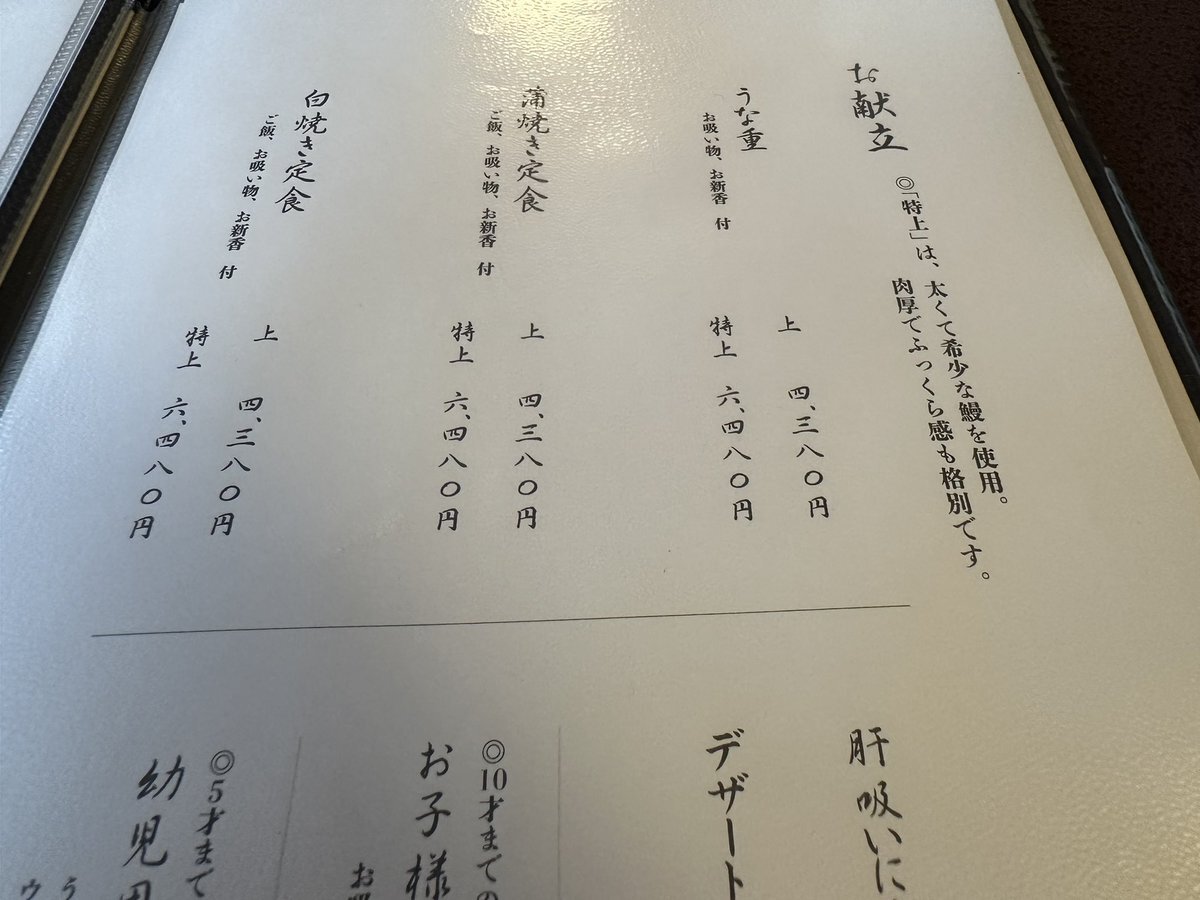 お献立
◎「特上」は、太くて希少な鰻を使用。
肉厚でふっくら感も格別です。
うな重
お吸い物、お新香 付
上 四、三八〇円
特上 六、四八〇円
蒲焼き定食
ご飯、お吸い物、お新香 付
上 四、三八〇円
特上 六、四八〇円
白焼き定食
ご飯、お吸い物、お新香 付
上 四、三八〇円
特上 六、四八〇円
肝吸いに
デザート
◎10才までの
お子様
お
◎5才まで
幼児
う
ウ